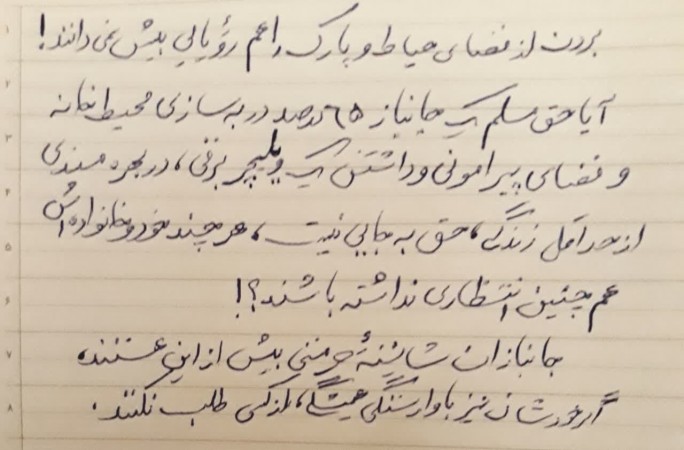 بردن از فضای حیاط و پارک را هم رؤیایی بیش نمی‌دانند!
آیا حق مسلم یک جانباز ۶۵ درصد در به سازی محیط خانه
و فضای پیرامونی و داشتن یک ویلچر برقی، در بهره مندی
از حداقل زندگی، حق به جایی نیست، هر چند خود و خانواده اش
هم چنین انتظاری نداشته باشند؟!
جانبازان شایستهٔ حرمتی بیش از این هستند،
گر خودشان نیز با وارستگی همیشگی، از کسی طلب نکنند.